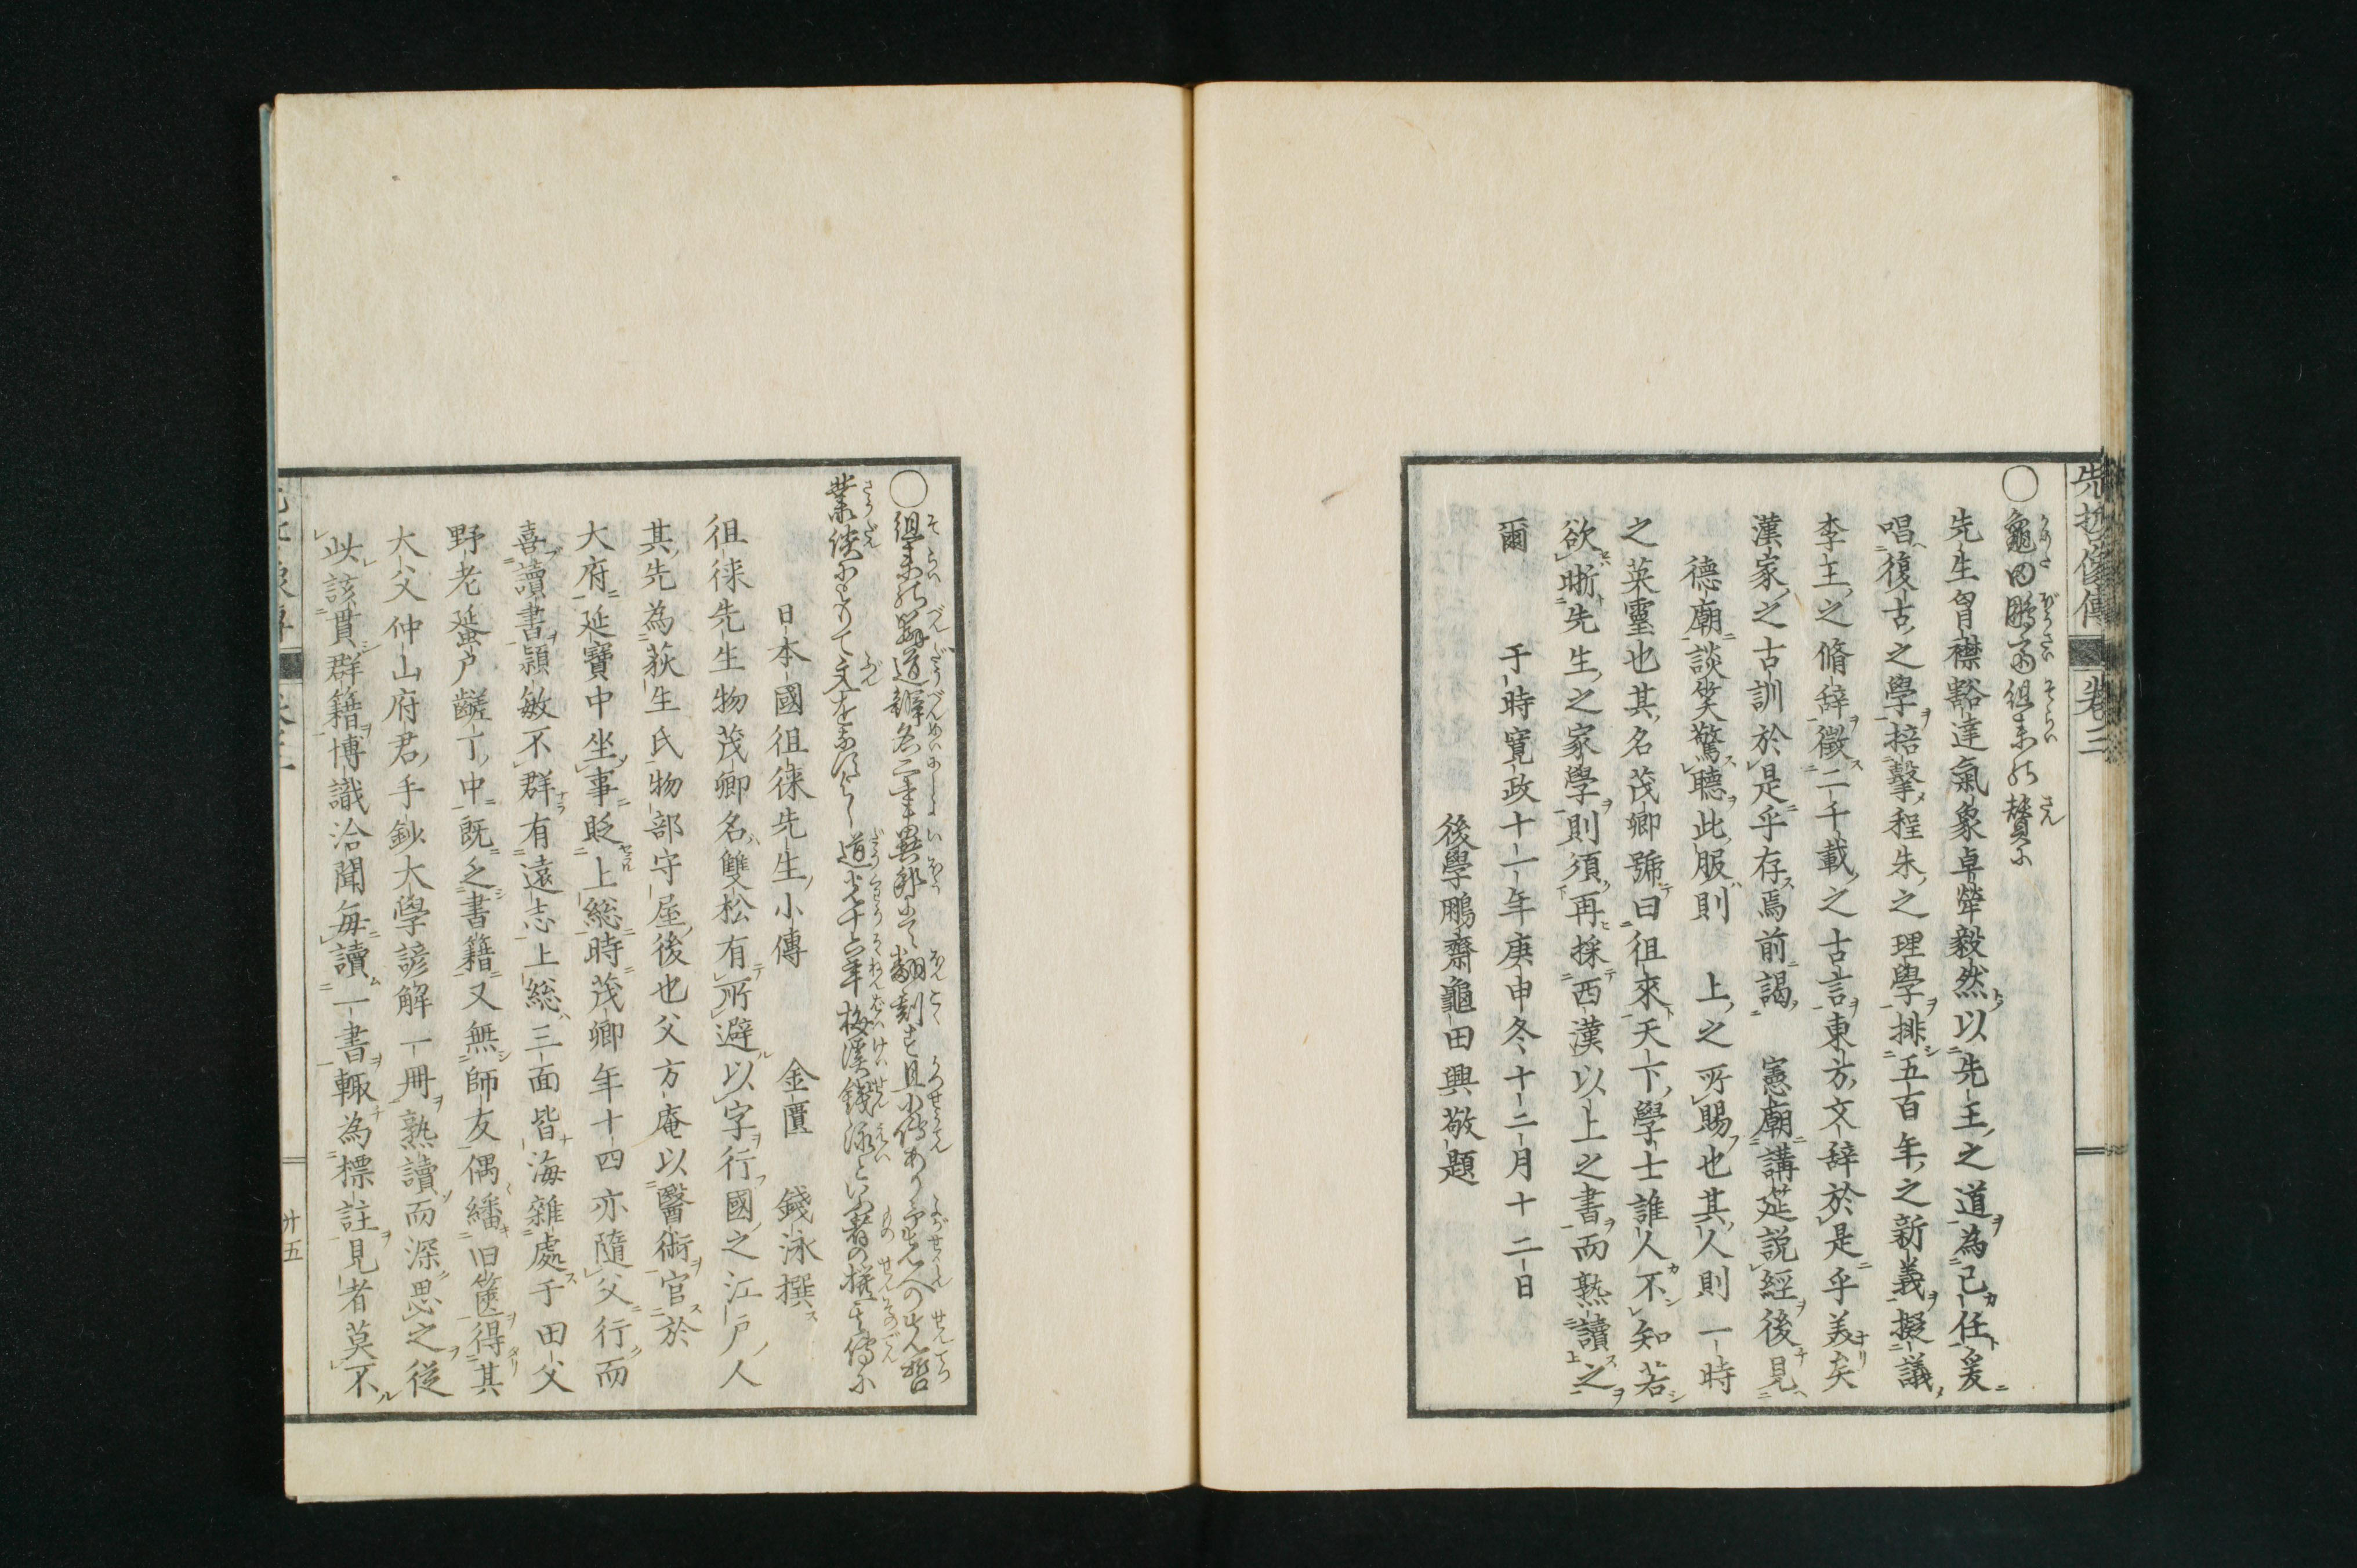 先哲像傳 卷三
○龜田鵬斎徂来の賛に
先生胷襟豁達氣象卓犖毅然以先王之道為己任爰
唱復古之學掊擊程朱之理學排五百年之新義擬議
李王之脩辞徵二千載之古言東方文辞於是乎美矣
漢家之古訓於是乎存焉前謁　憲廟講筵説經後見
德廟談笑驚聽此服則　上之所賜也其人則一時
之英靈也其名茂卿號曰徂來天下學士誰人不知若
欲晣先生之家學則須再採西漢以上之書而熟讀之
爾　于時寛政十一年庚申冬十二月十二日
後學鵬齋龜田興敬題
○徂来の辨道辨名二書異邦にて翻刻す且小傳あり予先人の先哲
叢談にもりて文を
道光十六年梅溪錢泳といふ者の撰其傳に
日本國徂徠先生小傳　金匱　錢泳撰
徂徠先生物茂卿名雙松有所避以字行國之江戸人
其先為荻生氏物部守屋後也父方庵以醫術官於
大府延寶中坐事貶上総時茂卿年十四亦隨父行而
喜讀書穎敏不群有遠志上総三面皆海雜處于田父
野老蜑戸齹丁中既乏書籍又無師友偶繙旧篋得其
大父仲山府君手鈔大學諺解一冊熟讀而深思之從
此該貫群籍博識洽聞每讀一書輙為標註見者莫不
廿五